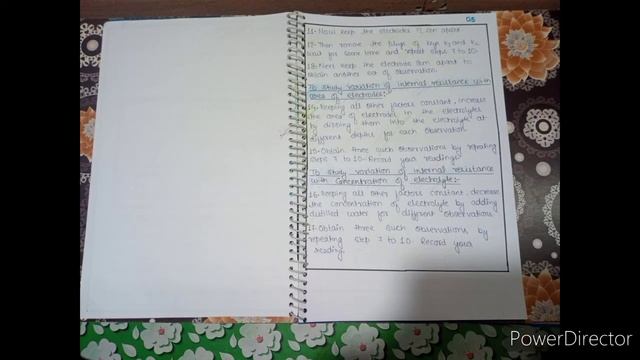 05
11- Now keep the electrodes 12 cm apart
12- Then remove the plugs of keys K1 and K2.
wait for some time and repeat steps 7 to 10.
13- Next keep the electrodes 9cm apart to
obtain another set of observation.
To Study variation of internal resistance with
area of electrodes:-
14- Keeping all other factors constant, increase
the area of electrodes in the electrolyte
by dipping them into the electrolyte at
different depths for each observation.
15- Obtain three such observations by repeating
steps 7 to 10. Record your readings.
To Study variation of internal resistance
with Concentration of electrolyte:-
16- Keeping all other factors constant, decrease
the concentration of electrolyte by adding
distilled water for different observations
17- Obtain three such observations by
repeating step 7 to 10. Record your
reading.
PowerDirector